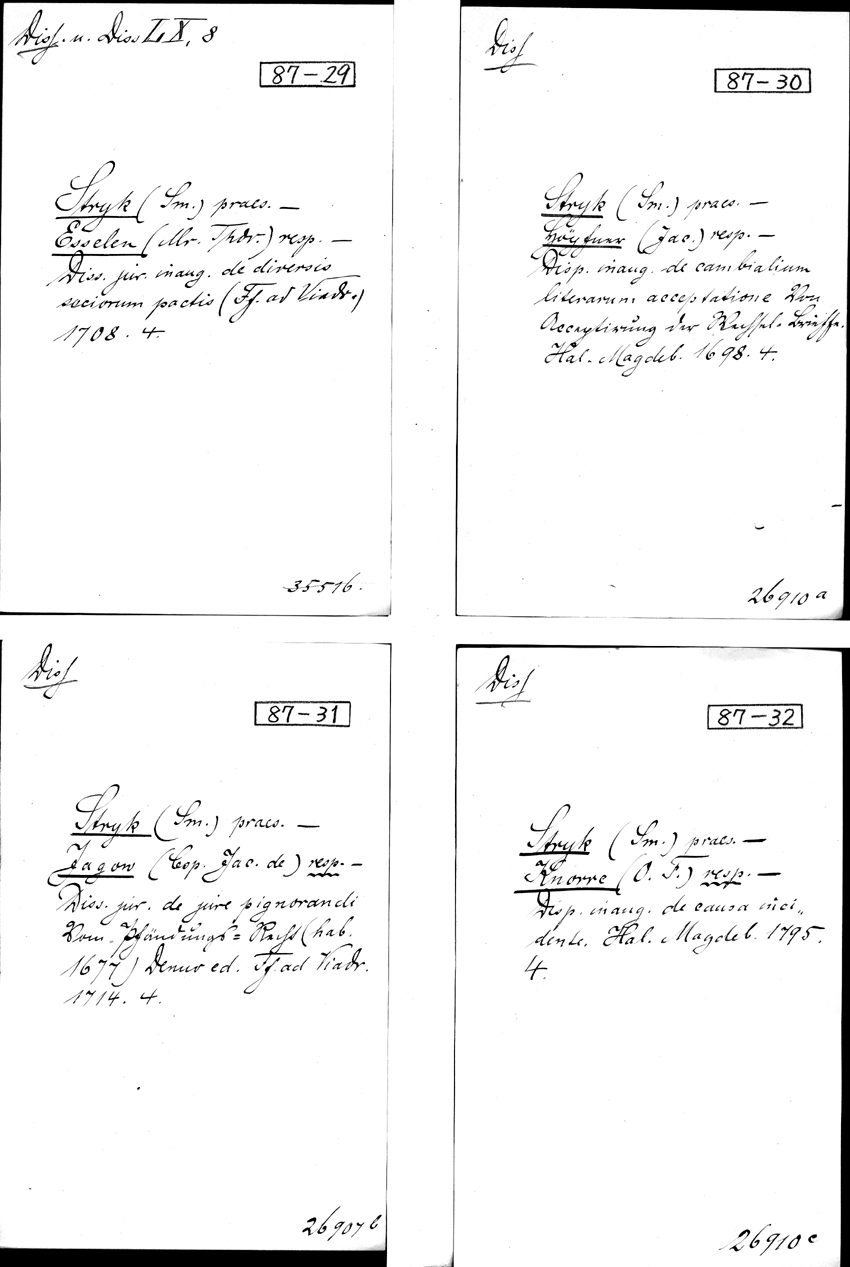 Diss. u. Diss I. X, 8
87-29
Stryk (Sm.) praes. —
Esselen (Mr. Thdr.) resp. —
Diss. jur. inaug. de diversis
sociorum pactis (Ff. ad Viadr.)
1708. 4.
35516.
Diss
87-30
Stryk (Sm.) praes. —
Höpfner (Jac.) resp. —
Disp. inaug. de cambialium
literarum acceptatione Von
Acceptirung der Wechsel-Brieffe.
Hal. Magdeb. 1698. 4.
26910 a
Diss
87-31
Stryk (Sm.) praes. —
Jagow (Csp. Jac. de) resp. —
Diss. jur. de jure pignorandi
Vom Pfändungs=Recht (hab.
1677) Denuo ed. Ff. ad Viadr.
1714. 4.
26907 b
Diss
87-32
Stryk (Sm.) praes. —
Knorre (O. F.) resp. —
Disp. inaug. de causa inci„
dente. Hal. Magdeb. 1795.
4.
26910 c